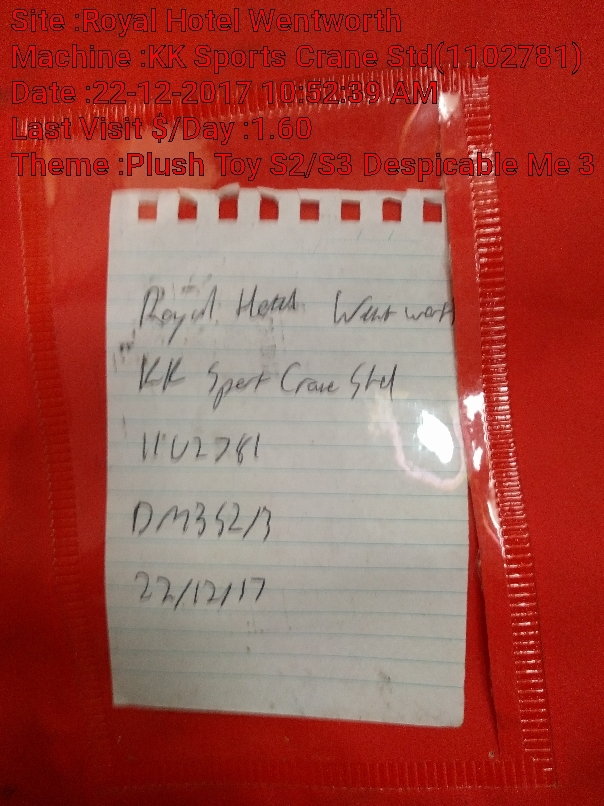 Site :Royal Hotel Wentworth
Machine :KK Sports Crane Std(1102781)
Date :22-12-2017 10:52:39 AM
Last Visit $/Day :1.60
Theme :Plush Toy S2/S3 Despicable Me 3
Royal Hotel Wentworth
KK Sport Crane Std
1102781
DM3S2/3
22/12/17